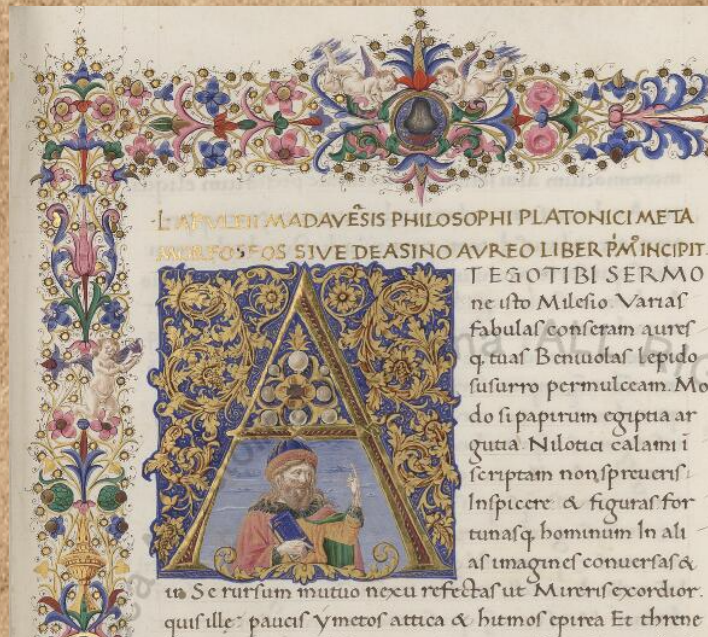 L·APVLEII MADAVẼSIS PHILOSOPHI PLATONICI META
MORFOSEOS SIVE DE ASINO AVREO LIBER P̃M̊ INCIPIT.
A
T EGO TIBI SERMO
ne isto Milesio. Varias
fabulas conseram aures
q tuas Beniuolas lepido
susurro permulceam. Mo
do si papirum egiptia ar
gutia Nilotici calami i
scriptam non spreueris
Inspicere & figuras for
tunasq hominum In ali
as imagines conuersas &
in Se rursum mutuo nexu refectas ut Mireris exordior.
quis ille: paucis ymetos attica & hitmos epirea Et threne